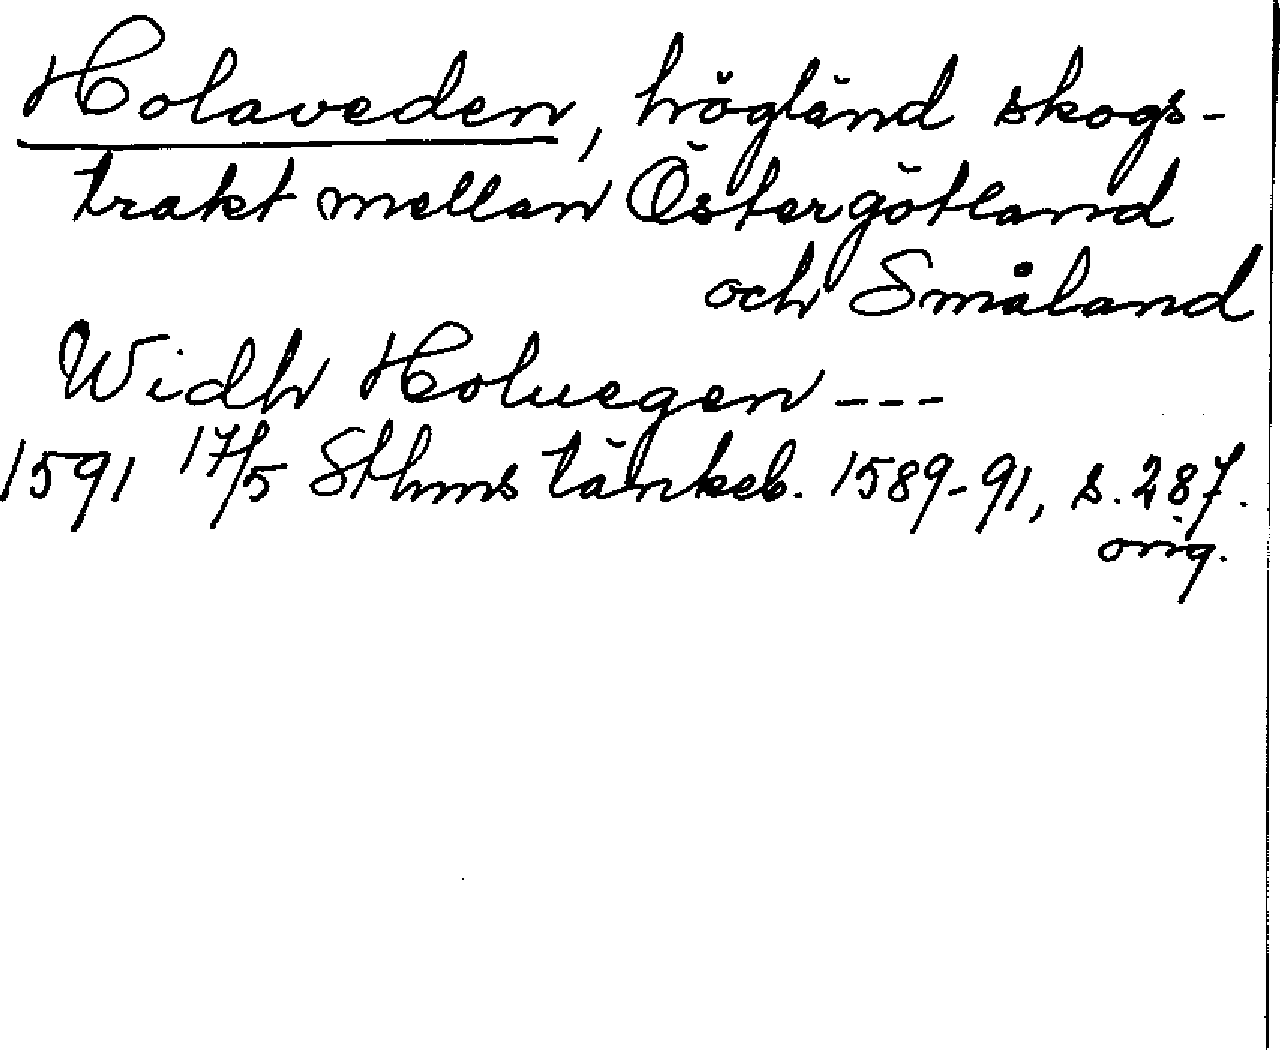 Holaveden, högländ skogs-
trakt mellan Östergötland
och Småland
Widh Holuegen ---
1591 17/5 Sthms tänkeb. 1589-91, s. 287.
orig.